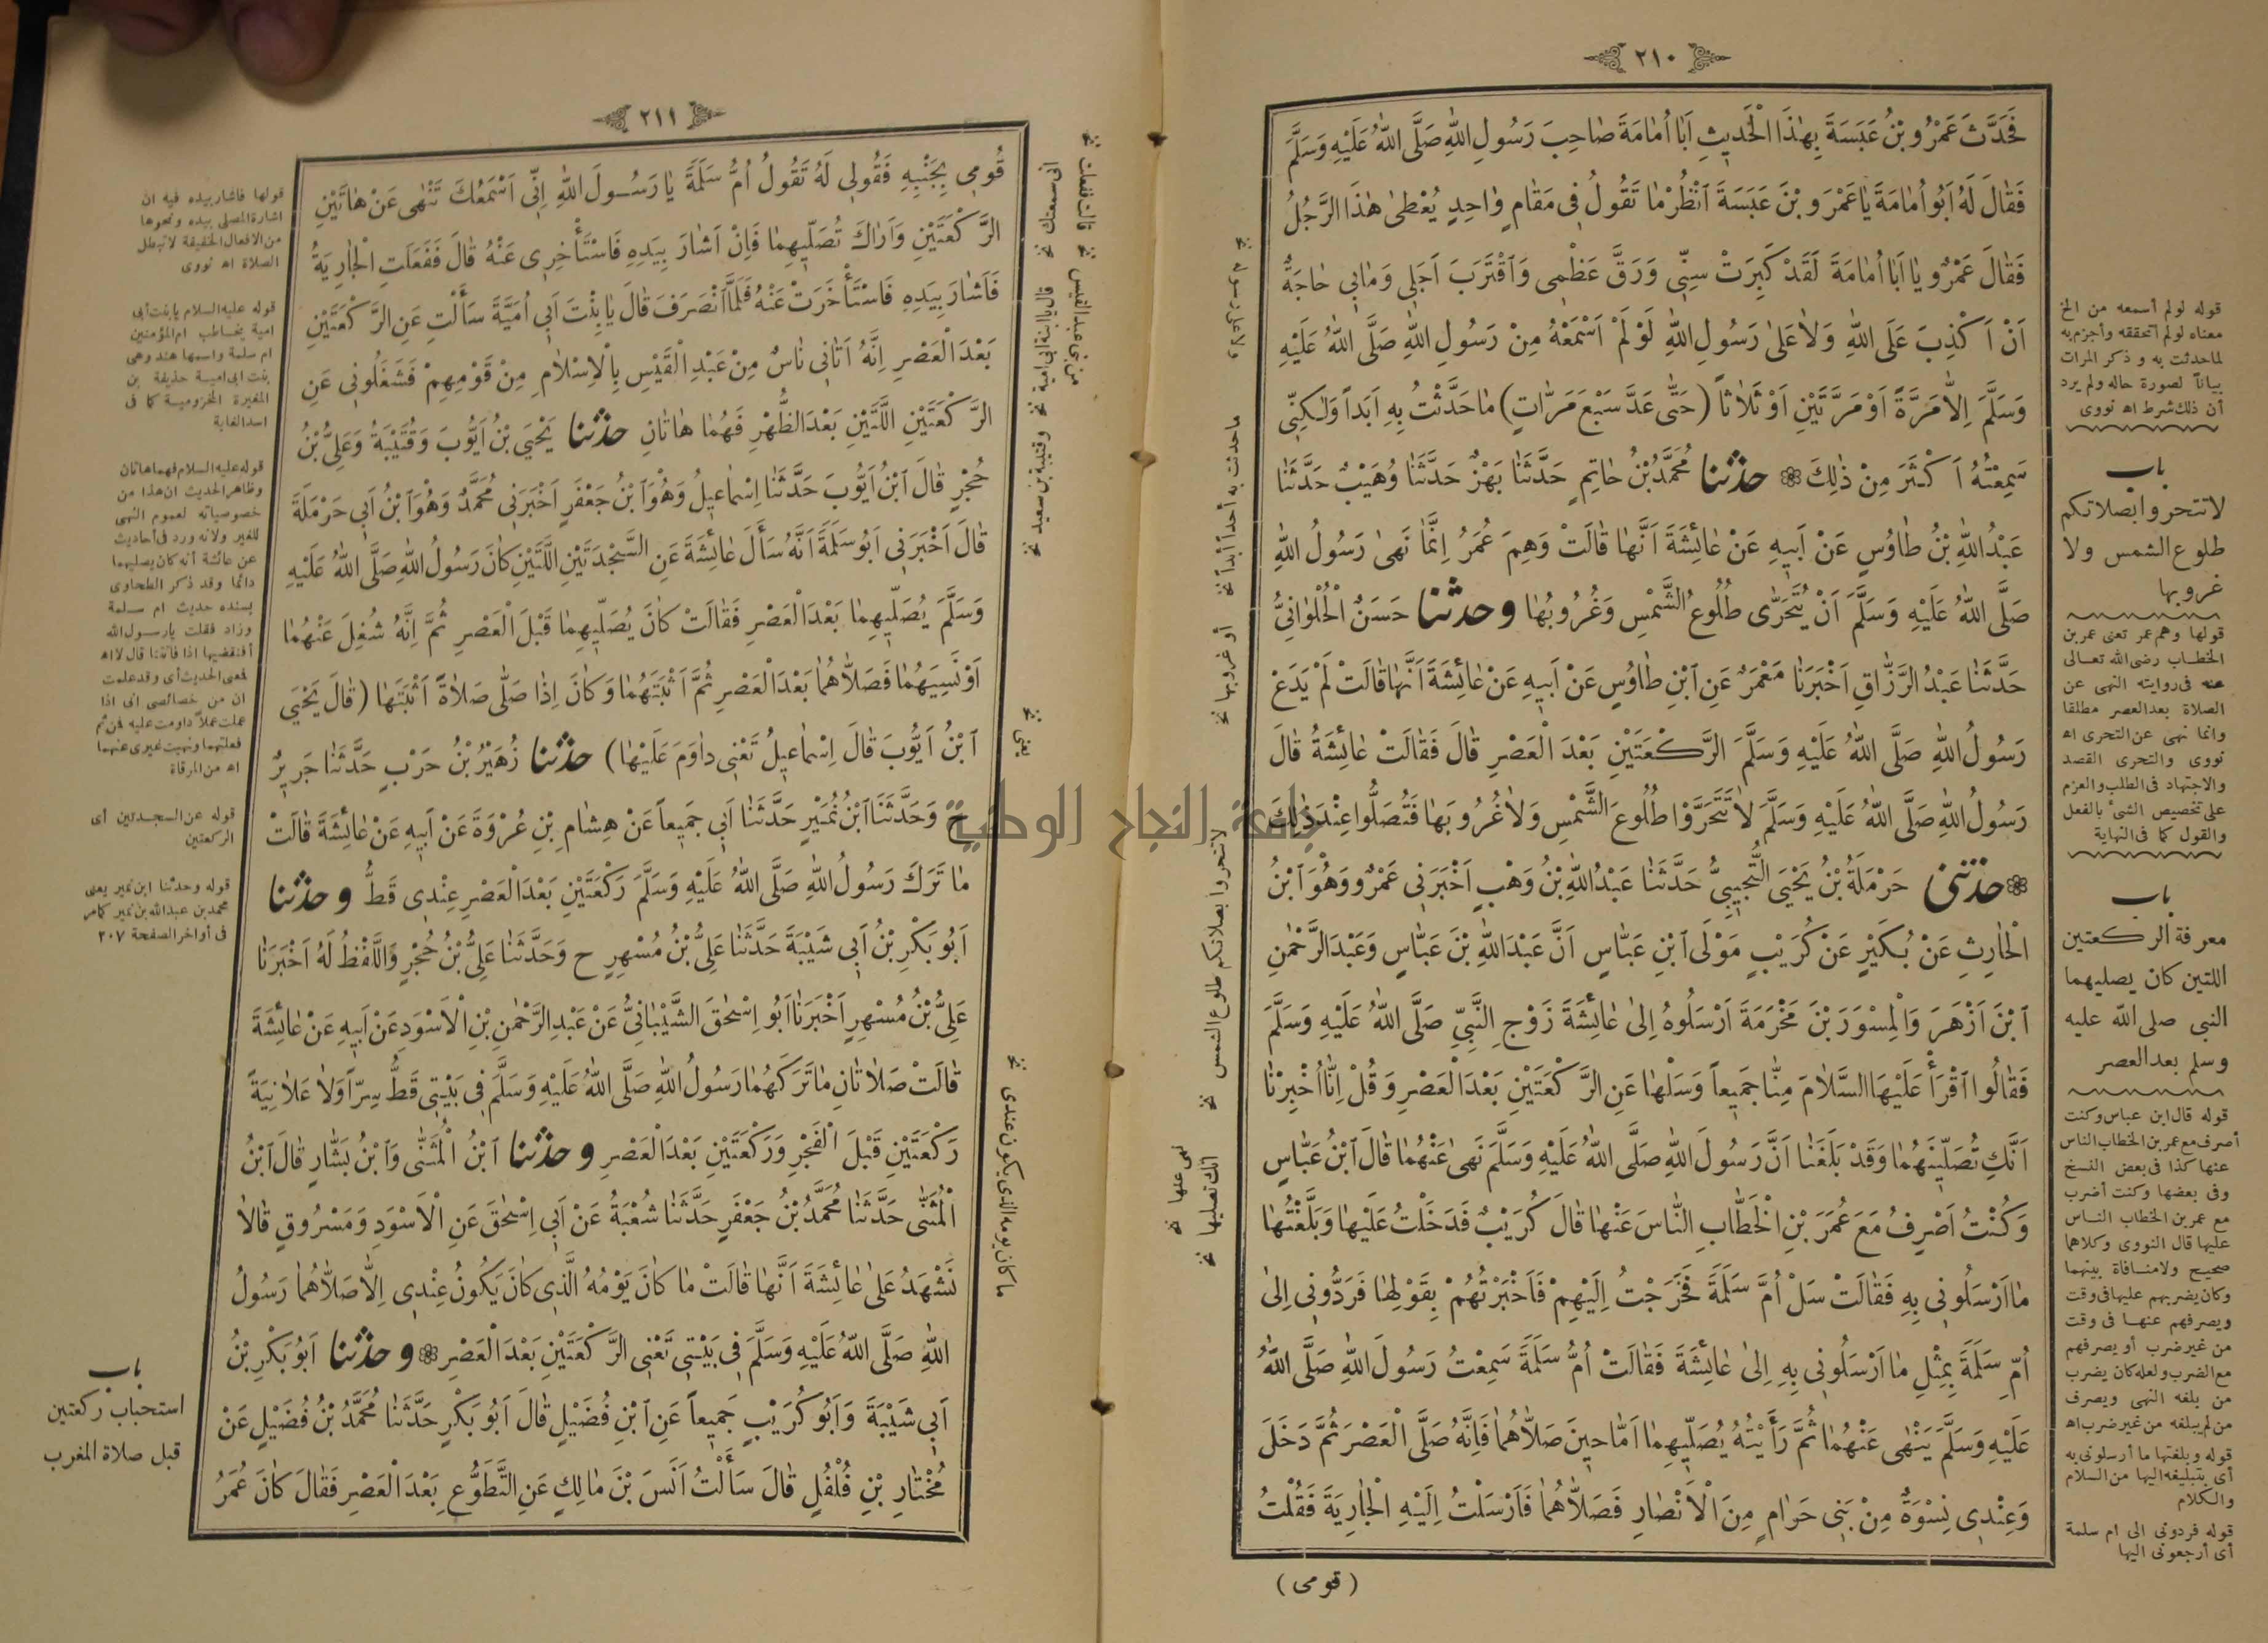 ٢١٠
فَحَدَّثَ عَمْرُو بْنُ عَبَسَةَ بِهٰذَا الْحَديثِ اَبَا اُمَامَةَ صَاحِبَ رَسُولِ اللّٰهِ صَلَّى اللّٰهُ عَلَيْهِ وَسَلَّمَ
فَقَالَ لَهُ اَبُو اُمَامَةَ يَا عَمْرَو بْنَ عَبَسَةَ اَنْظُرْ مَا تَقُولُ فِى مَقَامٍ وَاحِدٍ يُعْطَى هٰذَا الرَّجُلُ
فَقَالَ عَمْرٌو يَا اَبَا اُمَامَةَ لَقَدْ كَبِرَتْ سِنِّى وَرَقَّ عَظْمِى وَاقْتَرَبَ اَجَلِى وَمَا بِى حَاجَةٌ
اَنْ اَكْذِبَ عَلَى اللّٰهِ وَلَا عَلَى رَسُولِ اللّٰهِ لَوْ لَمْ اَسْمَعْهُ مِنْ رَسُولِ اللّٰهِ صَلَّى اللّٰهُ عَلَيْهِ
وَسَلَّمَ اِلَّا مَرَّةً اَوْ مَرَّتَيْنِ اَوْ ثَلَاثاً (حَتَّى عَدَّ سَبْعَ مَرَّاتٍ) مَا حَدَّثْتُ بِهِ اَبَداً وَلٰكِنِّى
سَمِعْتُهُ اَكْثَرَ مِنْ ذٰلِكَ ❁ حدثنا مُحَمَّدُ بْنُ حَاتِمٍ حَدَّثَنَا بَهْزٌ حَدَّثَنَا وُهَيْبٌ حَدَّثَنَا
عَبْدُ اللّٰهِ بْنُ طَاوُسٍ عَنْ اَبِيهِ عَنْ عَائِشَةَ اَنَّهَا قَالَتْ وَهِمَ عُمَرُ اِنَّمَا نَهَى رَسُولُ اللّٰهِ
صَلَّى اللّٰهُ عَلَيْهِ وَسَلَّمَ اَنْ يُتَحَرَّى طُلُوعُ الشَّمْسِ وَغُرُوبُهَا وحدثنا حَسَنٌ الْحُلْوَانِىُّ
حَدَّثَنَا عَبْدُ الرَّزَّاقِ اَخْبَرَنَا مَعْمَرٌ عَنِ ابْنِ طَاوُسٍ عَنْ اَبِيهِ عَنْ عَائِشَةَ اَنَّهَا قَالَتْ لَمْ يَدَعْ
رَسُولُ اللّٰهِ صَلَّى اللّٰهُ عَلَيْهِ وَسَلَّمَ الرَّكْعَتَيْنِ بَعْدَ الْعَصْرِ قَالَ فَقَالَتْ عَائِشَةُ قَالَ
رَسُولُ اللّٰهِ صَلَّى اللّٰهُ عَلَيْهِ وَسَلَّمَ لَا تَتَحَرَّوْا طُلُوعَ الشَّمْسِ وَلَا غُرُوبَهَا فَتُصَلُّوا عِنْدَ ذٰلِكَ
❁ حدثنى حَرْمَلَةُ بْنُ يَحْيَى التُّجِيبِىُّ حَدَّثَنَا عَبْدُ اللّٰهِ بْنُ وَهْبٍ اَخْبَرَنِى عَمْرٌو وَهُوَ ابْنُ
الْحَارِثِ عَنْ بُكَيْرٍ عَنْ كُرَيْبٍ مَوْلَى ابْنِ عَبَّاسٍ اَنَّ عَبْدَ اللّٰهِ بْنَ عَبَّاسٍ وَعَبْدَ الرَّحْمٰنِ
ابْنَ اَزْهَرَ وَالْمِسْوَرَ بْنَ مَخْرَمَةَ اَرْسَلُوهُ اِلَى عَائِشَةَ زَوْجِ النَّبِىِّ صَلَّى اللّٰهُ عَلَيْهِ وَسَلَّمَ
فَقَالُوا اقْرَأْ عَلَيْهَا السَّلَامَ مِنَّا جَمِيعاً وَسَلْهَا عَنِ الرَّكْعَتَيْنِ بَعْدَ الْعَصْرِ وَقُلْ اِنَّا اُخْبِرْنَا
اَنَّكِ تُصَلِّينَهُمَا وَقَدْ بَلَغَنَا اَنَّ رَسُولَ اللّٰهِ صَلَّى اللّٰهُ عَلَيْهِ وَسَلَّمَ نَهَى عَنْهُمَا قَالَ ابْنُ عَبَّاسٍ
وَكُنْتُ اَصْرِفُ مَعَ عُمَرَ بْنِ الْخَطَّابِ النَّاسَ عَنْهَا قَالَ كُرَيْبٌ فَدَخَلْتُ عَلَيْهَا وَبَلَّغْتُهَا
مَا اَرْسَلُونِى بِهِ فَقَالَتْ سَلْ اُمَّ سَلَمَةَ فَخَرَجْتُ اِلَيْهِمْ فَاَخْبَرْتُهُمْ بِقَوْلِهَا فَرَدُّونِى اِلَى
اُمِّ سَلَمَةَ بِمِثْلِ مَا اَرْسَلُونِى بِهِ اِلَى عَائِشَةَ فَقَالَتْ اُمُّ سَلَمَةَ سَمِعْتُ رَسُولَ اللّٰهِ صَلَّى اللّٰهُ
عَلَيْهِ وَسَلَّمَ يَنْهَى عَنْهُمَا ثُمَّ رَأَيْتُهُ يُصَلِّيهِمَا اَمَّا حِينَ صَلَّاهُمَا فَاِنَّهُ صَلَّى الْعَصْرَ ثُمَّ دَخَلَ
وَعِنْدِى نِسْوَةٌ مِنْ بَنِى حَرَامٍ مِنَ الْاَنْصَارِ فَصَلَّاهُمَا فَاَرْسَلْتُ اِلَيْهِ الْجَارِيَةَ فَقُلْتُ
(قومى)
قوله لولم أسمعه من الخ
معناه لولم أتحققه وأجزم به
لماحدثت به و ذكر المرات
بياناً لصورة حاله ولم يرد
أن ذلك شرط اه نووى
باب
لاتتحروا بصلاتكم
طلوع الشمس ولا
غروبها
قولها وهم عمر تعنى عمر بن
الخطاب رضى الله تعالى
عنه فى روايته النهى عن
الصلاة بعد العصر مطلقا
وانما نهى عن التحرى اه
نووى والتحرى القصد
والاجتهاد فى الطلب والعزم
على تخصيص الشئ بالفعل
والقول كما فى النهاية
باب
معرفة الركعتين
اللتين كان يصليهما
النبى صلى الله عليه
وسلم بعد العصر
قوله قال ابن عباس وكنت
أصرف مع عمر بن الخطاب الناس
عنها كذا فى بعض النسخ
وفى بعضها وكنت أضرب
مع عمر بن الخطاب الناس
عليها قال النووى وكلاهما
صحيح ولا منافاة بينهما
وكان يضربهم عليها فى وقت
ويصرفهم عنها فى وقت
من غير ضرب أو يصرفهم
مع الضرب ولعله كان يضرب
من بلغه النهى ويصرف
من لم يبلغه من غير ضرب اه
قوله وبلغتها ما أرسلونى به
أى بتبليغه اليها من السلام
والكلام
قوله فردونى الى ام سلمة
أى أرجعونى اليها
ماحدثت به أحداً أبداً نخ
أو غروبها نخ
لاتتحروا بصلاتكم طلوع الشمس نخ
انك تصليها نخ
نهى عنها نخ
جامعة النجاح الوطنية
٢١١
قُومِى بِجَنْبِهِ فَقُولِى لَهُ تَقُولُ اُمُّ سَلَمَةَ يَا رَسُولَ اللّٰهِ اِنِّى اَسْمَعُكَ تَنْهَى عَنْ هَاتَيْنِ
الرَّكْعَتَيْنِ وَاَرَاكَ تُصَلِّيهِمَا فَاِنْ اَشَارَ بِيَدِهِ فَاسْتَأْخِرِى عَنْهُ قَالَ فَفَعَلَتِ الْجَارِيَةُ
فَاَشَارَ بِيَدِهِ فَاسْتَأْخَرَتْ عَنْهُ فَلَمَّا انْصَرَفَ قَالَ يَا بِنْتَ اَبِى اُمَيَّةَ سَأَلْتِ عَنِ الرَّكْعَتَيْنِ
بَعْدَ الْعَصْرِ اِنَّهُ اَتَانِى نَاسٌ مِنْ عَبْدِ الْقَيْسِ بِالْاِسْلَامِ مِنْ قَوْمِهِمْ فَشَغَلُونِى عَنِ
الرَّكْعَتَيْنِ اللَّتَيْنِ بَعْدَ الظُّهْرِ فَهُمَا هَاتَانِ حدثنا يَحْيَى بْنُ اَيُّوبَ وَقُتَيْبَةُ وَعَلِىُّ بْنُ
حُجْرٍ قَالَ ابْنُ اَيُّوبَ حَدَّثَنَا اِسْمَاعِيلُ وَهُوَ ابْنُ جَعْفَرٍ اَخْبَرَنِى مُحَمَّدٌ وَهُوَ ابْنُ اَبِى حَرْمَلَةَ
قَالَ اَخْبَرَنِى اَبُو سَلَمَةَ اَنَّهُ سَأَلَ عَائِشَةَ عَنِ السَّجْدَتَيْنِ اللَّتَيْنِ كَانَ رَسُولُ اللّٰهِ صَلَّى اللّٰهُ عَلَيْهِ
وَسَلَّمَ يُصَلِّيهِمَا بَعْدَ الْعَصْرِ فَقَالَتْ كَانَ يُصَلِّيهِمَا قَبْلَ الْعَصْرِ ثُمَّ اِنَّهُ شُغِلَ عَنْهُمَا
اَوْ نَسِيَهُمَا فَصَلَّاهُمَا بَعْدَ الْعَصْرِ ثُمَّ اَثْبَتَهُمَا وَكَانَ اِذَا صَلَّى صَلَاةً اَثْبَتَهَا (قَالَ يَحْيَى
ابْنُ اَيُّوبَ قَالَ اِسْمَاعِيلُ تَعْنِى دَاوَمَ عَلَيْهَا) حدثنا زُهَيْرُ بْنُ حَرْبٍ حَدَّثَنَا جَرِيرٌ
ح وَحَدَّثَنَا ابْنُ نُمَيْرٍ حَدَّثَنَا اَبِى جَمِيعاً عَنْ هِشَامِ بْنِ عُرْوَةَ عَنْ اَبِيهِ عَنْ عَائِشَةَ قَالَتْ
مَا تَرَكَ رَسُولُ اللّٰهِ صَلَّى اللّٰهُ عَلَيْهِ وَسَلَّمَ رَكْعَتَيْنِ بَعْدَ الْعَصْرِ عِنْدِى قَطُّ وحدثنا
اَبُو بَكْرِ بْنُ اَبِى شَيْبَةَ حَدَّثَنَا عَلِىُّ بْنُ مُسْهِرٍ ح وَحَدَّثَنَا عَلِىُّ بْنُ حُجْرٍ وَاللَّفْظُ لَهُ اَخْبَرَنَا
عَلِىُّ بْنُ مُسْهِرٍ اَخْبَرَنَا اَبُو اِسْحٰقَ الشَّيْبَانِىُّ عَنْ عَبْدِ الرَّحْمٰنِ بْنِ الْاَسْوَدِ عَنْ اَبِيهِ عَنْ عَائِشَةَ
قَالَتْ صَلَاتَانِ مَا تَرَكَهُمَا رَسُولُ اللّٰهِ صَلَّى اللّٰهُ عَلَيْهِ وَسَلَّمَ فِى بَيْتِى قَطُّ سِرّاً وَلَا عَلَانِيَةً
رَكْعَتَيْنِ قَبْلَ الْفَجْرِ وَرَكْعَتَيْنِ بَعْدَ الْعَصْرِ وحدثنا ابْنُ الْمُثَنَّى وَابْنُ بَشَّارٍ قَالَ ابْنُ
الْمُثَنَّى حَدَّثَنَا مُحَمَّدُ بْنُ جَعْفَرٍ حَدَّثَنَا شُعْبَةُ عَنْ اَبِى اِسْحٰقَ عَنِ الْاَسْوَدِ وَمَسْرُوقٍ قَالَا
نَشْهَدُ عَلَى عَائِشَةَ اَنَّهَا قَالَتْ مَا كَانَ يَوْمُهُ الَّذِى كَانَ يَكُونُ عِنْدِى اِلَّا صَلَّاهُمَا رَسُولُ
اللّٰهِ صَلَّى اللّٰهُ عَلَيْهِ وَسَلَّمَ فِى بَيْتِى تَعْنِى الرَّكْعَتَيْنِ بَعْدَ الْعَصْرِ ❁ وحدثنا اَبُو بَكْرِ بْنُ
اَبِى شَيْبَةَ وَاَبُو كُرَيْبٍ جَمِيعاً عَنِ ابْنِ فُضَيْلٍ قَالَ اَبُو بَكْرٍ حَدَّثَنَا مُحَمَّدُ بْنُ فُضَيْلٍ عَنْ
مُخْتَارِ بْنِ فُلْفُلٍ قَالَ سَأَلْتُ اَنَسَ بْنَ مَالِكٍ عَنِ التَّطَوُّعِ بَعْدَ الْعَصْرِ فَقَالَ كَانَ عُمَرُ
قالت ففعلت نخ
من بنى عبد القيس نخ
انى سمعتك نخ
قال يا ابنة ابى امية نخ
وقتيبة بن سعيد نخ
يعنى نخ
ما كان يومه الذى يكون عندى نخ
قولها فاشار بيده فيه ان
اشارة المصلى بيده ونحوها
من الافعال الخفيفة لاتبطل
الصلاة اه نووى
قوله عليه السلام يا بنت أبى
امية يخاطب ام المؤمنين
ام سلمة واسمها هند وهى
بنت ابى امية حذيفة بن
المغيرة المخزومية كما فى
اسد الغابة
قوله عليه السلام فهما هاتان
وظاهر الحديث ان هذا من
خصوصياته لعموم النهى
للغير ولانه ورد فى أحاديث
عن عائشة أنه كان يصليهما
دائما وقد ذكر الطحاوى
بسنده حديث ام سلمة
وزاد فقلت يارسول الله
أفنقضيها اذا فاتتنا قال لا اه
فمعنى الحديث أى وقد علمت
ان من خصائصى انى اذا
عملت عملاً داومت عليه فمن ثم
فعلتهما ونهيت غيرى عنهما
اه من المرقاة
قوله عن السجدتين أى
الركعتين
قوله وحدثنا ابن نمير يعنى
محمد بن عبدالله بن نمير كما مر
فى أواخر الصفحة ٢٠٧
باب
استحباب ركعتين
قبل صلاة المغرب